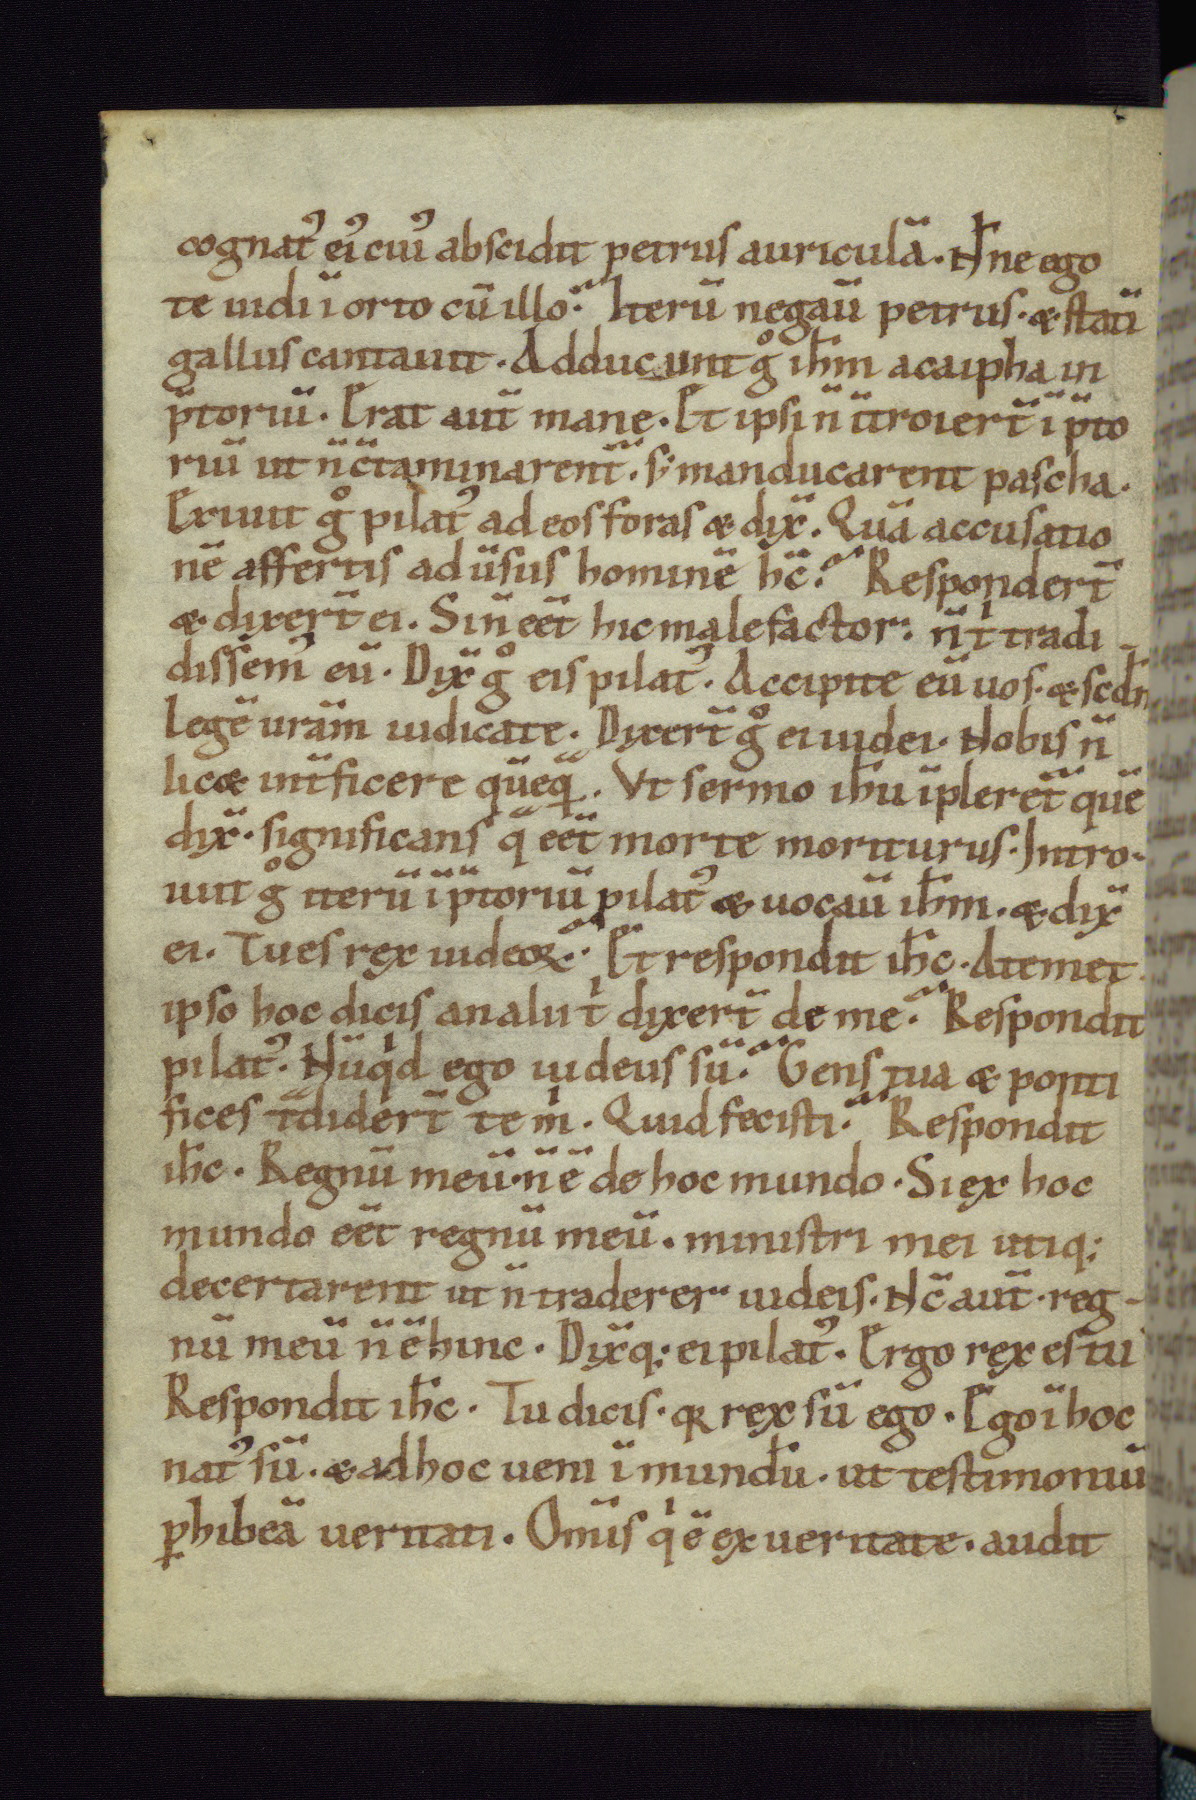 cognat᾿ ei᾿ cui᾿ abscidit petrus auriculā. Nħne ego
te uidi ī orto cū illo? Iterū negaū petrus. & statī
gallus cantauit. Adducunt gͦ ihm̄ acaipha in
p̄toriū. Erat aut̄ mane. Et ipsi n̄ ītroiert̄ ī p̄to
riū ut n̄ c̄taminarent̄. s; manducarent pascha.
Exiuit gͦ pilat᾿ ad eos foras & dix̄. Quā accusatio
nē affertis adūsus hominē hc̄? Respondert̄
& dixert̄ ei. Sin̄ eēt hic malefactor: n̄ tͥ tradi-
dissem᾿ eū. Dix̄ gͦ eis pilat᾿. Accipite eū uos. & scdm̄
legē urām iudicate. Dixert̄ gͦ ei iudei. Nobis n̄
lic& int̄ficere quēq̄. Vt sermo ihū īpleret̄ quē
dix̄. significans q̄ eēt morte moriturus. Intro-
iuit gͦ iterū ī p̄toriū pilat᾿ & uocaū ihm̄. & dix̄
ei. Tu es rex iudeoꝝ? Et respondit ihc̄. Atemet
ipso hoc dicis an alii tͥ dixert̄ de me? Respondit
pilat᾿. Nūqͥd ego iudeus sū? Gens tua & ponti
fices t̄didert̄ te mͥ. Quid fecisti? Respondit
ihc̄. Regnū meū. n̄ ē de hoc mundo. Si ex hoc
mundo eēt regnū meū. ministri mei utiq;
decertarent ut n̄ traderer iudeis. Nc̄ aut̄. reg-
nū meū n̄ ē hinc. Dix̄ q; ei pilat᾿. Ergo rex es tu
Respondit ihc̄. Tu dicis. qꝛ rex sū ego. Ego ī hoc
nat᾿ sū. & ad hoc ueni ī mundū. ut testimoniū
ꝑhibeā ueritati. Om̄is qͥ ē ex ueritate. audit